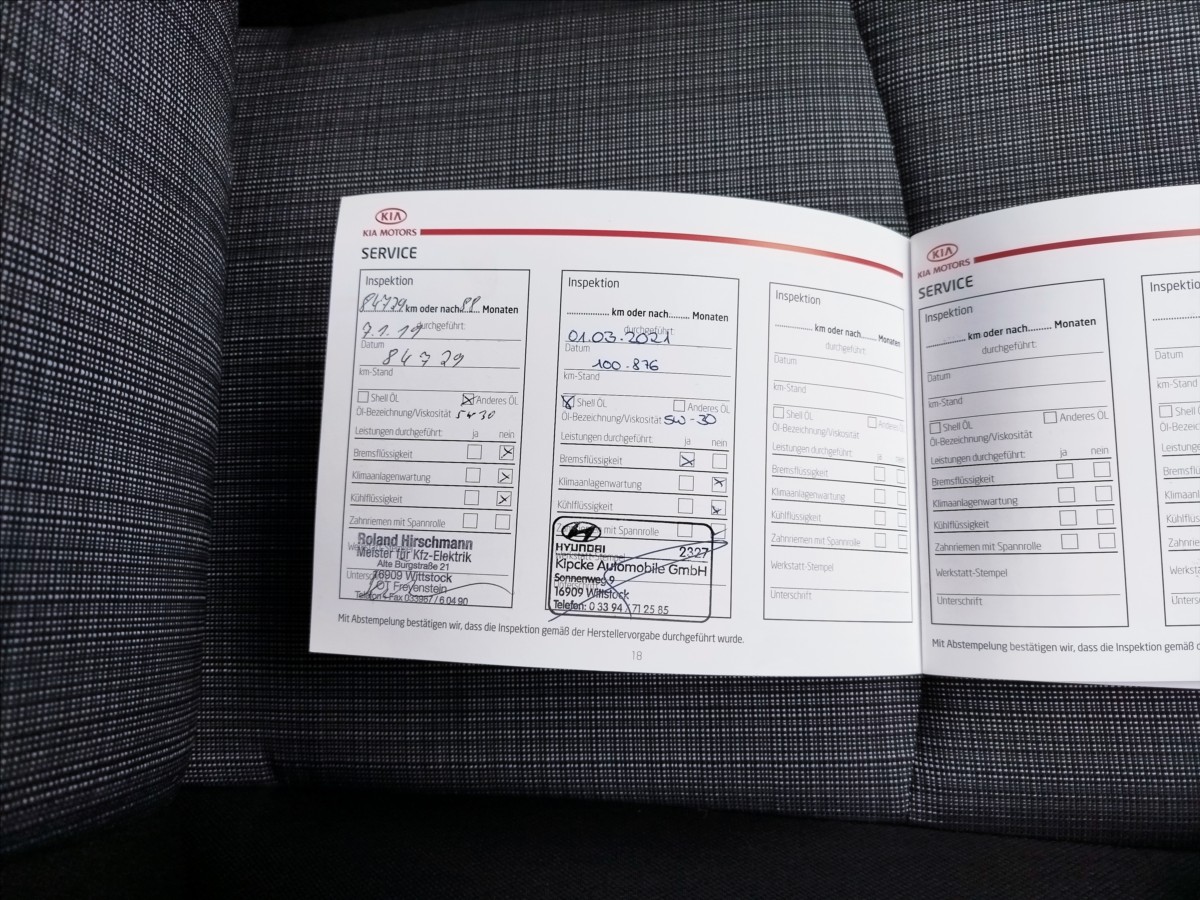 KIA
KIA MOTORS
SERVICE
Inspektion
84729 km oder nach 88 Monaten
durchgeführt:
7.1.19
Datum
84729
km-Stand
Shell ÖL
Anderes ÖL
Öl-Bezeichnung/Viskosität 5w30
Leistungen durchgeführt: ja nein
Bremsflüssigkeit
Klimaanlagenwartung
Kühlflüssigkeit
Zahnriemen mit Spannrolle
Roland Hirschmann
Meister für Kfz-Elektrik
Alte Burgstraße 21
16909 Wittstock
OT Freyenstein
Telefon + Fax 033967 / 6 04 90
Inspektion
................ km oder nach......... Monaten
durchgeführt:
01.03.2021
Datum
100.876
km-Stand
Shell ÖL
Anderes ÖL
Öl-Bezeichnung/Viskosität 5W-30
Leistungen durchgeführt: ja nein
Bremsflüssigkeit
Klimaanlagenwartung
Kühlflüssigkeit
mit Spannrolle
HYUNDAI 2327
Kipcke Automobile GmbH
Sonnenweg 9
16909 Wittstock
Telefon: 0 33 94 / 71 25 85
Inspektion
................ km oder nach......... Monaten
durchgeführt:
Datum
km-Stand
Shell ÖL
Anderes ÖL
Öl-Bezeichnung/Viskosität
Leistungen durchgeführt: ja nein
Bremsflüssigkeit
Klimaanlagenwartung
Kühlflüssigkeit
Zahnriemen mit Spannrolle
Werkstatt-Stempel
Unterschrift
Mit Abstempelung bestätigen wir, dass die Inspektion gemäß der Herstellervorgabe durchgeführt wurde.
18
KIA
KIA MOTORS
SERVICE
Inspektion
................ km oder nach......... Monaten
durchgeführt:
Datum
km-Stand
Shell ÖL
Anderes ÖL
Öl-Bezeichnung/Viskosität
Leistungen durchgeführt: ja nein
Bremsflüssigkeit
Klimaanlagenwartung
Kühlflüssigkeit
Zahnriemen mit Spannrolle
Werkstatt-Stempel
Unterschrift
Inspektio
Datum
km-Stand
Shell Ö
Öl-Bezeic
Leistunge
Bremsflü
Klimaanl
Kühlflüss
Zahnriem
Werksta
Untersc
Mit Abstempelung bestätigen wir, dass die Inspektion gemäß